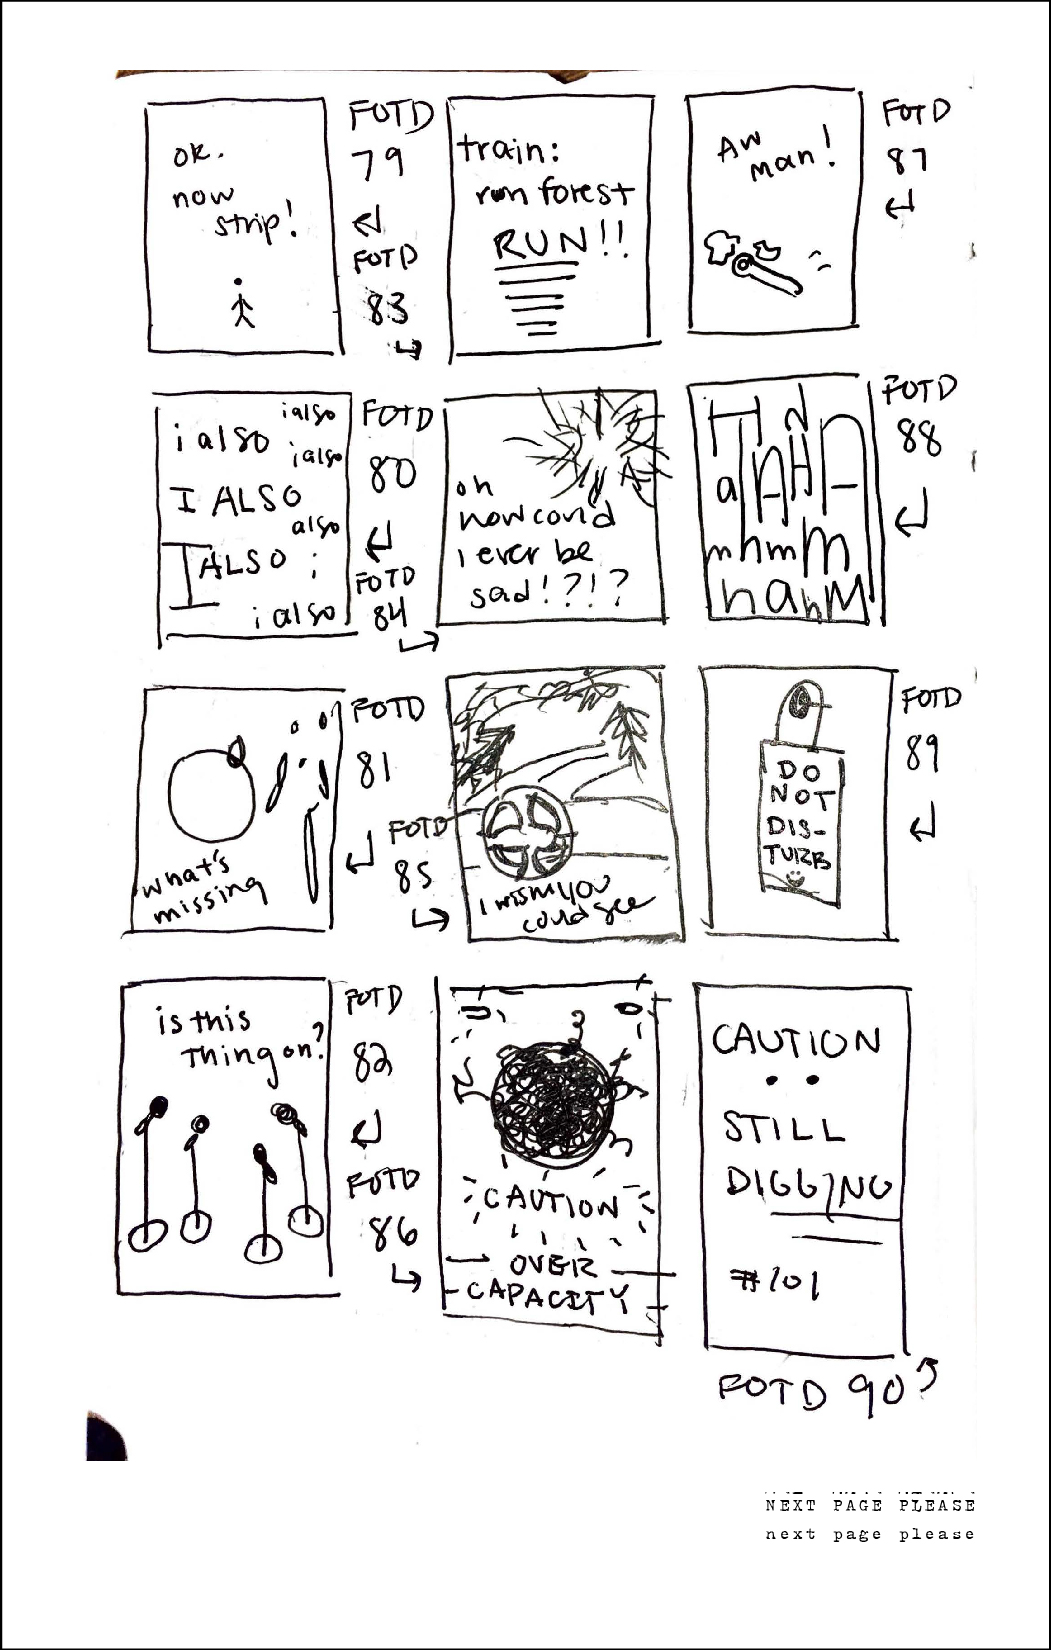 ok.
now
strip!
FOTD
79
FOTD
83
train:
run forest
RUN!!
Aw
man!
FOTD
87
i also
i also
i also
I ALSO
also
I ALSO i
i also
FOTD
80
FOTD
84
oh
how could
i ever be
sad!?!?
FOTD
88
what's
missing
FOTD
81
FOTD
85
i wish you
could see
DO
NOT
DIS-
TURB
FOTD
89
is this
thing on?
FOTD
82
FOTD
86
CAUTION
OVER
CAPACITY
CAUTION
STILL
DIGGING
#101
FOTD 90
NEXT PAGE PLEASE
next page please